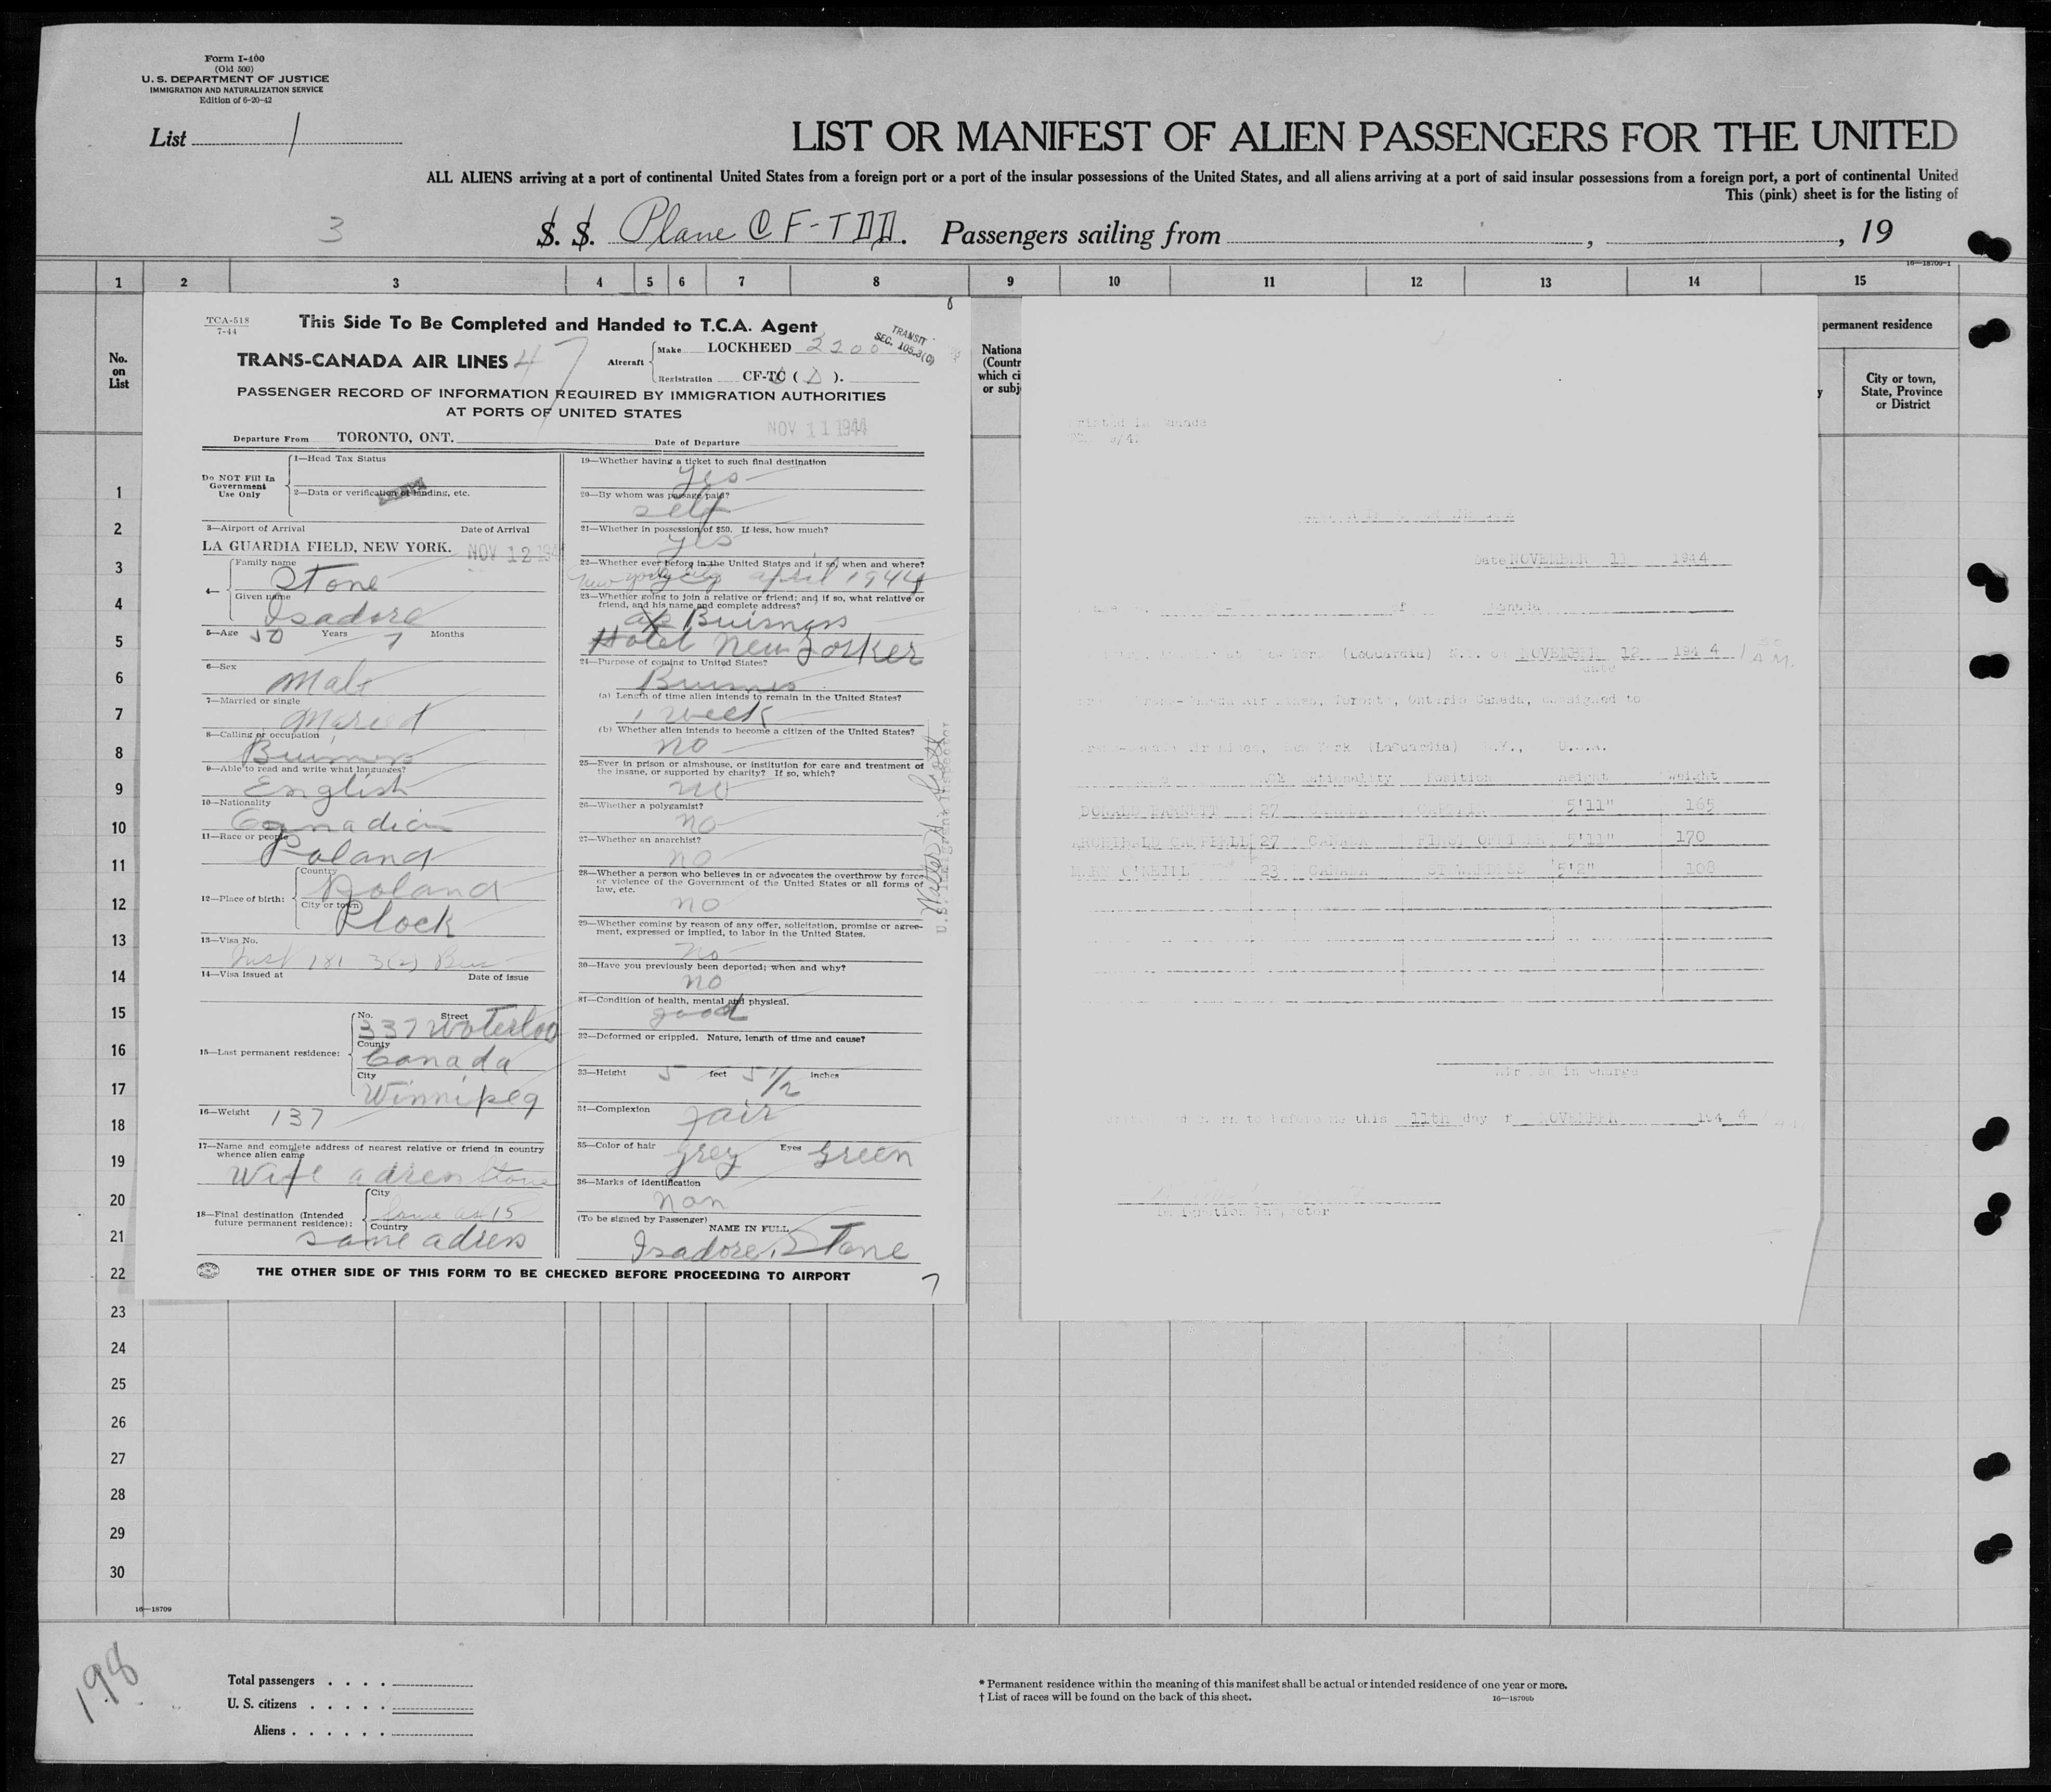 Form I-400
(Old 500)
U. S. DEPARTMENT OF JUSTICE
IMMIGRATION AND NATURALIZATION SERVICE
Edition of 6-20-42
List 1
LIST OR MANIFEST OF ALIEN PASSENGERS FOR THE UNITED
ALL ALIENS arriving at a port of continental United States from a foreign port or a port of the insular possessions of the United States, and all aliens arriving at a port of said insular possessions from a foreign port, a port of continental United
This (pink) sheet is for the listing of
3
S. S. Plane CF-TDD. Passengers sailing from , , 19
16—18709-1
1 2 3 4 5 6 7 8 9 10 11 12 13 14 15
No. on List
Nationa
(Countr
which ci
or subj
permanent residence
y
City or town, State, Province or District
TCA-518
7-44
This Side To Be Completed and Handed to T.C.A. Agent
TRANSIT
SEC. 105.3(C)
TRANS-CANADA AIR LINES 47
Aircraft Make LOCKHEED 2200
Registration CF-TC ( D ).
PASSENGER RECORD OF INFORMATION REQUIRED BY IMMIGRATION AUTHORITIES
AT PORTS OF UNITED STATES
Departure From TORONTO, ONT. Date of Departure NOV 11 1944
Do NOT Fill In Government Use Only
1—Head Tax Status
2—Data or verification of landing, etc.
3—Airport of Arrival Date of Arrival
LA GUARDIA FIELD, NEW YORK. NOV 12 194
4— Family name Stone
Given name Isadore
5—Age 50 Years 7 Months
6—Sex
Male
7—Married or single
Maried
8—Calling or occupation
Buisness
9—Able to read and write what languages?
English
10—Nationality
Canadian
11—Race or people
Poland
12—Place of birth: Country Poland
City or town Plock
13—Visa No.
14—Visa issued at Date of issue
15—Last permanent residence: No. Street
337 Waterloo
County
Canada
City
Winnipeg
16—Weight 137
17—Name and complete address of nearest relative or friend in country
whence alien came
Wife adress Stone
18—Final destination (Intended
future permanent residence): City
Same as 15
Country
same adress
19—Whether having a ticket to such final destination
Yes
20—By whom was passage paid?
self
21—Whether in possession of $50. If less, how much?
yes
22—Whether ever before in the United States and if so, when and where?
New York City april 1944
23—Whether going to join a relative or friend; and if so, what relative or
friend, and his name and complete address?
Buisness
Hotel New Yorker
24—Purpose of coming to United States?
Buisness
(a) Length of time alien intends to remain in the United States?
1 week
(b) Whether alien intends to become a citizen of the United States?
no
25—Ever in prison or almshouse, or institution for care and treatment of
the insane, or supported by charity? If so, which?
no
26—Whether a polygamist?
no
27—Whether an anarchist?
no
28—Whether a person who believes in or advocates the overthrow by force
or violence of the Government of the United States or all forms of
law, etc.
no
29—Whether coming by reason of any offer, solicitation, promise or agree-
ment, expressed or implied, to labor in the United States.
No
30—Have you previously been deported; when and why?
no
31—Condition of health, mental and physical.
good
32—Deformed or crippled. Nature, length of time and cause?
33—Height 5 feet 5 1/2 inches
34—Complexion fair
35—Color of hair Grey Eyes Green
36—Marks of identification
non
(To be signed by Passenger) NAME IN FULL
Isadore Stone
THE OTHER SIDE OF THIS FORM TO BE CHECKED BEFORE PROCEEDING TO AIRPORT
7
Date NOVEMBER 11 1944
of Canada
(LaGuardia) N.Y. on NOVEMBER 12 194 4
date
Trans-Canada Air Lines, Toronto, Ontario Canada, consigned to
Trans-Canada Air Lines, New York (LaGuardia) N.Y., U.S.A.
AGE Nationality Position Height Weight
DONALD BARNETT 27 CANADA CAPTAIN 5'11" 165
ARCHIBALD CAMPBELL 27 CANADA FIRST OFFICER 5'11" 170
MARY O'NEILL 23 CANADA STEWARDESS 5'2" 108
in Charge
sworn to before me this 11th day of NOVEMBER 194 4
Immigration Inspector
1
2
3
4
5
6
7
8
9
10
11
12
13
14
15
16
17
18
19
20
21
22
23
24
25
26
27
28
29
30
16—18709
198
Total passengers . . . .
U. S. citizens . . . . .
Aliens . . . . . .
* Permanent residence within the meaning of this manifest shall be actual or intended residence of one year or more.
† List of races will be found on the back of this sheet.
16—18709b